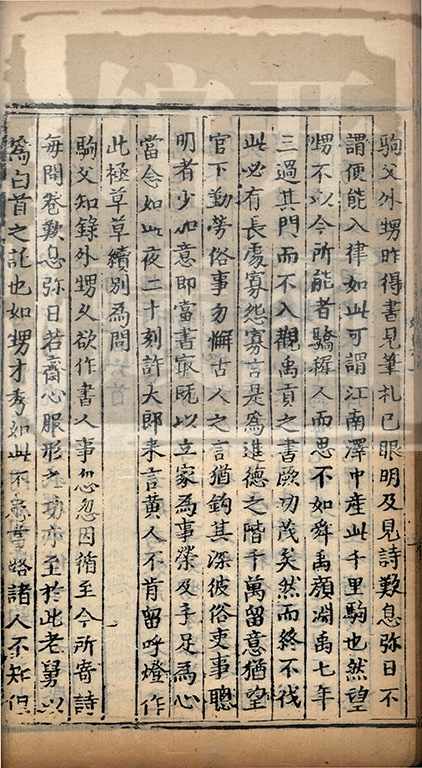 駒父外甥昨得書見筆札已眼明及見詩歎息弥日不
謂便能入律如此可謂江南澤中產此千里駒也然望
甥不以今所能者驕穉人而思不如舜禹顏淵禹七年
三過其門而不入觀禹貢之書厥功茂矣然而終不伐
此必有長處寡怨寡言是爲進德之階千萬留意猶望
官下勤勞俗事勿懈古人之言猶鉤其深彼俗吏事聰
明者少加意即當書最既以立家為事榮及手足為心
當念如此夜二十刻許大郎来言黄人不肯留呼燈作
此極草草續別為問
駒父知錄外甥久欲作書人事怱忽因循至今所寄詩
每開卷歎息弥日若齋心服形之功亦至於此老舅以
爲白首之託也如甥才秀如此不患當路諸人不知但